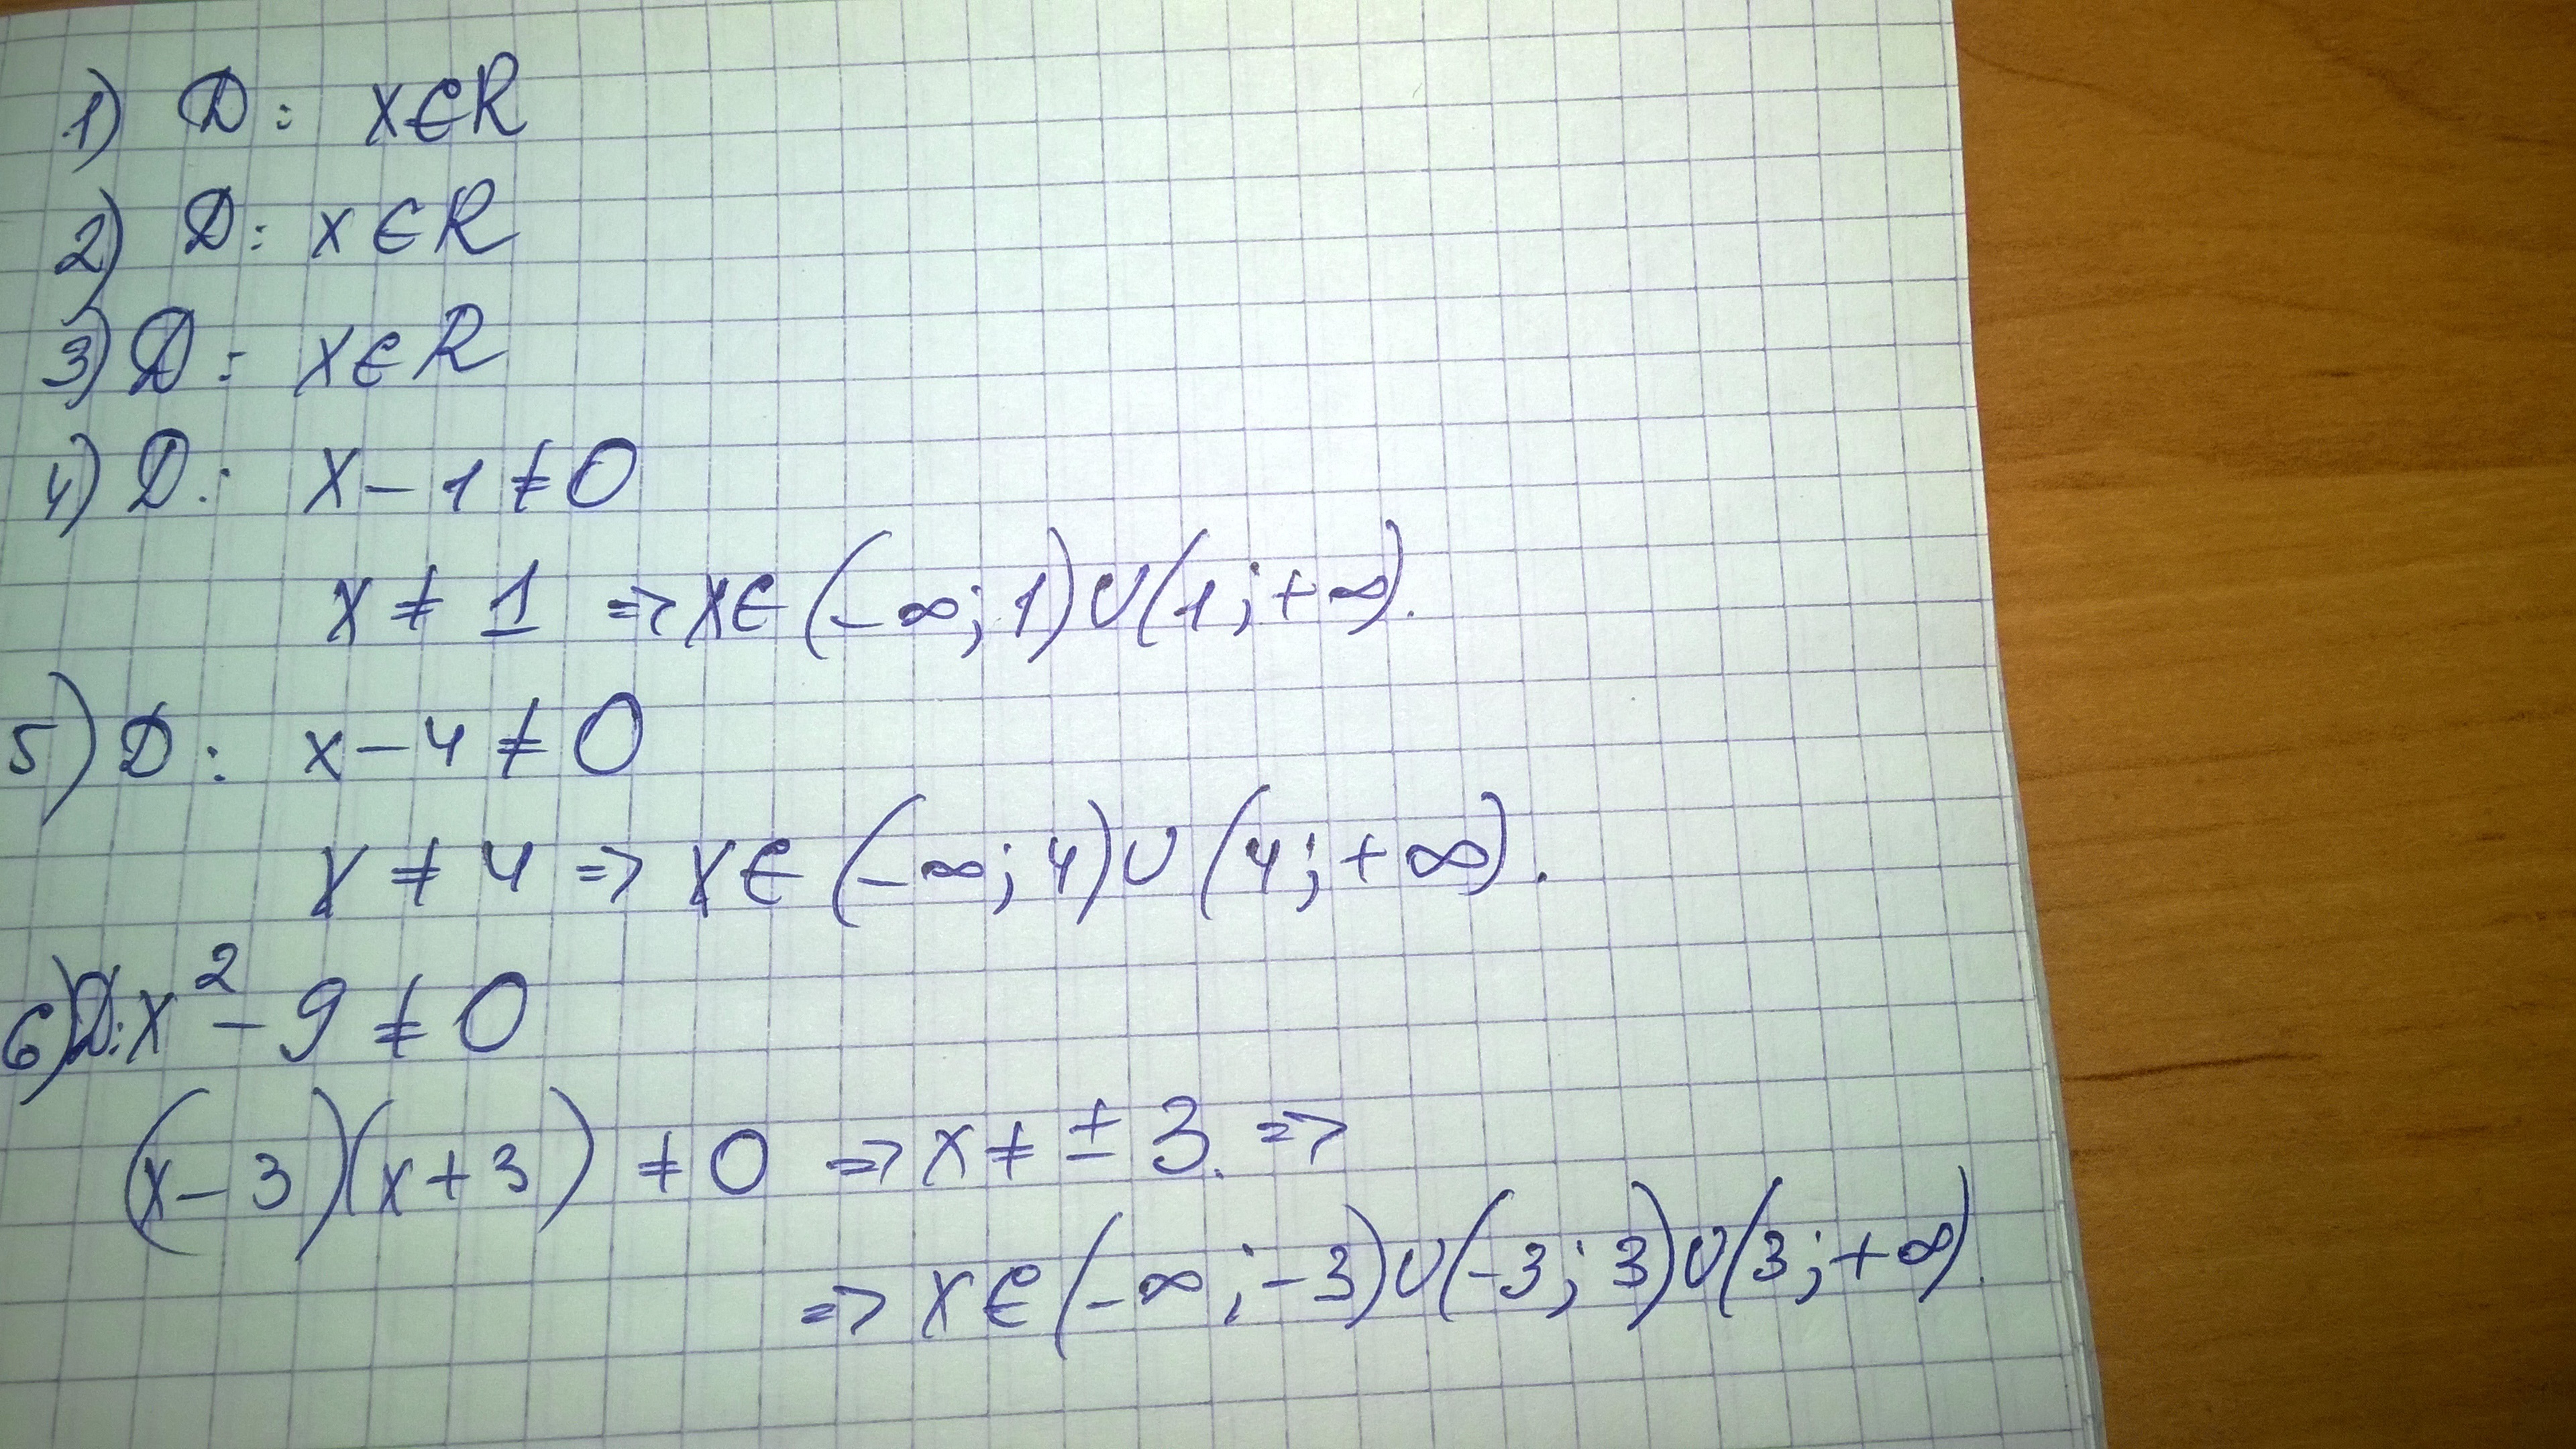 1) D: x∈R
2) D: x∈R
3) D: x∈R
4) D: x-1≠0
x≠1 => x∈(-∞;1)∪(1;+∞).
5) D: x-4≠0
x≠4 => x∈(-∞;4)∪(4;+∞).
6) D: x²-9≠0
(x-3)(x+3)≠0 => x≠±3. =>
=> x∈(-∞;-3)∪(-3;3)∪(3;+∞).